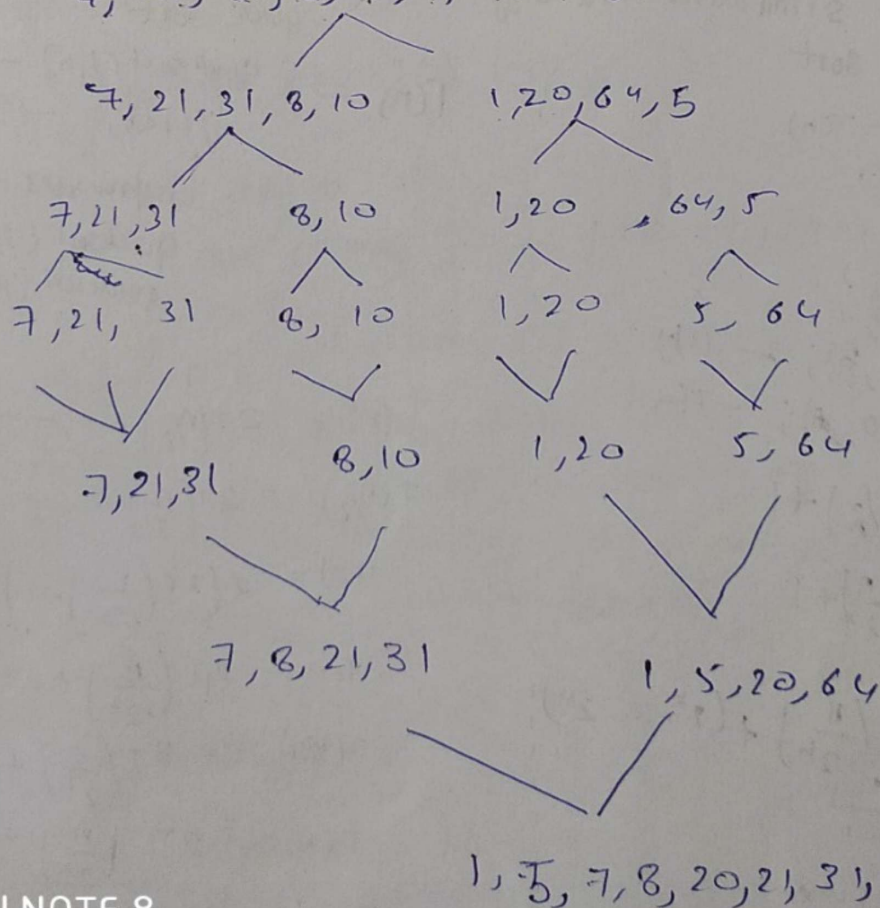 7, 21, 31, 8, 10 1, 20, 64, 5
7, 21, 31 8, 10 1, 20 , 64, 5
7, 21, 31 8, 10 1, 20 5, 64
7, 21, 31 8, 10 1, 20 5, 64
7, 8, 21, 31 1, 5, 20, 64
1, 5, 7, 8, 20, 21, 31,
NOTE 8